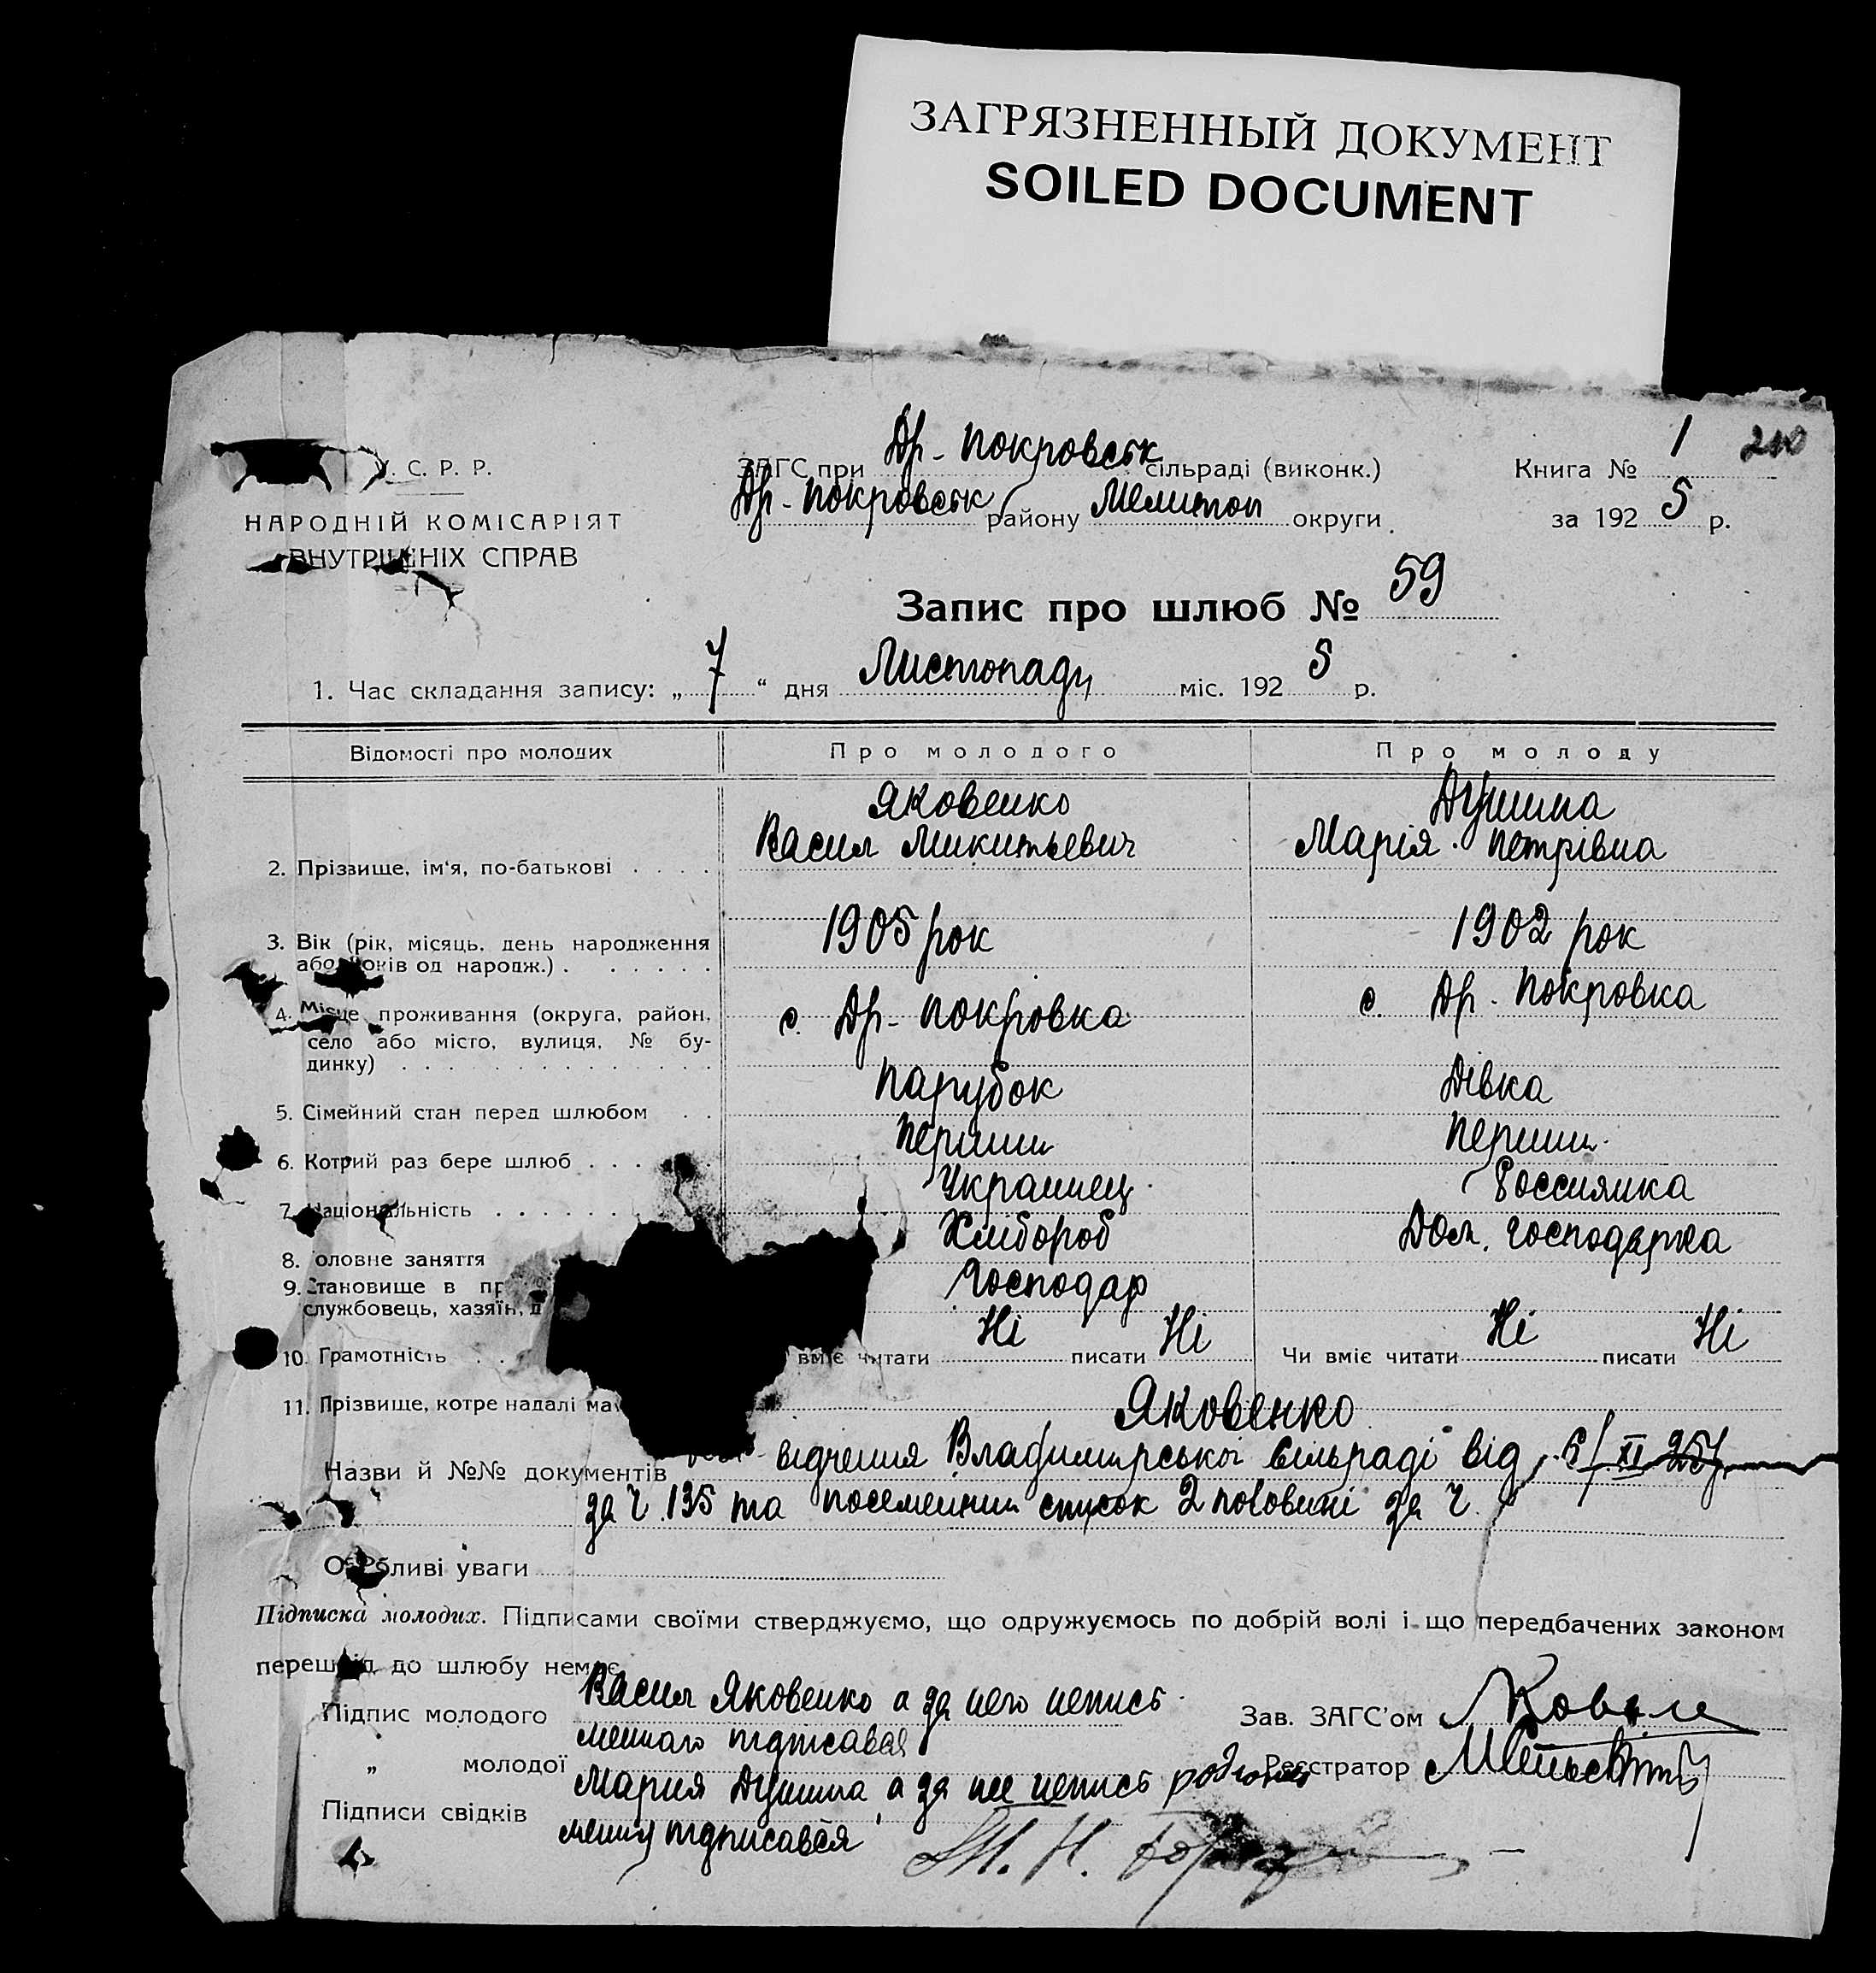 ЗАГРЯЗНЕННЫЙ ДОКУМЕНТ
SOILED DOCUMENT
С. Р. Р.
НАРОДНІЙ КОМІСАРІЯТ
ВНУТРІШНІХ СПРАВ
ЗАГС при Др - Покровськ сільраді (виконк.)
Др - Покровськ району Мелитоп округи
Книга № 1 210
за 192 5 р.
Запис про шлюб № 59
1. Час складання запису: „ 7 “ дня Листопаду міс. 192 5 р.
Відомості про молодих Про молодого Про молоду
Яковенко Душина
2. Прізвище, ім'я, по-батькові Васил Микитьевич Марія Петрівна
3. Вік (рік, місяць, день народження 1905 рок 1902 рок
або років од народж.)
4. Місце проживання (округа, район, с. Др - Покровка с. Др - Покровка
село або місто, вулиця, № бу-
динку)
5. Сімейний стан перед шлюбом Парубок Дівка
6. Котрий раз бере шлюб Перший Перший
7. Національність Украинец Россиянка
8. оловне заняття Хлібороб Дом. господарка
9. Становище в пр Господар
службовець, хазяїн, д
10. Грамотність вміє читати Ні писати Ні Чи вміє читати Ні писати Ні
11. Прізвище, котре надалі ма Яковенко
Назви й №№ документів відчення Владимирської сільраді від 6/XI 25р.
за ч. 135 та посемейний список 2 половині за ч.
Особливі уваги
Підписка молодих. Підписами своїми стверджуємо, що одружуємось по добрій волі і що передбачених законом
перешкід до шлюбу немає.
Підпис молодого Васил Яковенко а за него неписьменнаго підписавая
„ молодої Мария Душина, а за нее неписьменну підписавая
Підписи свідків
Зав. ЗАГС'ом Коваль
Реєстратор